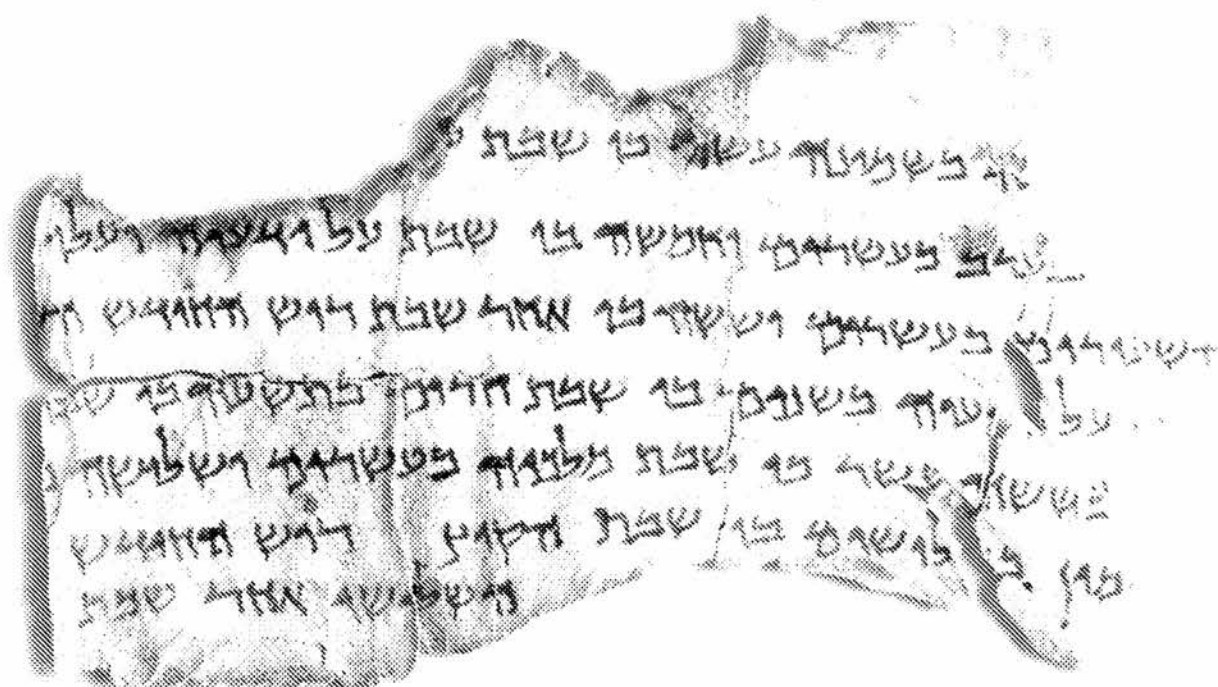 בשמונה עשר בו שבת ע
בעשרים וחמשה בו שבת על ידעיה ועלו
השעורים בעשרים וששה בו אחר שבת רוש החודש ה
על ידעיה בשנים בו שבת חרים בתשעה בו שבת
בששה עשר בו שבת מלכיה בעשרים ושלושה ב
מין בשלושים בו שבת הקוץ רוש החודש
השלישי אחר שבת